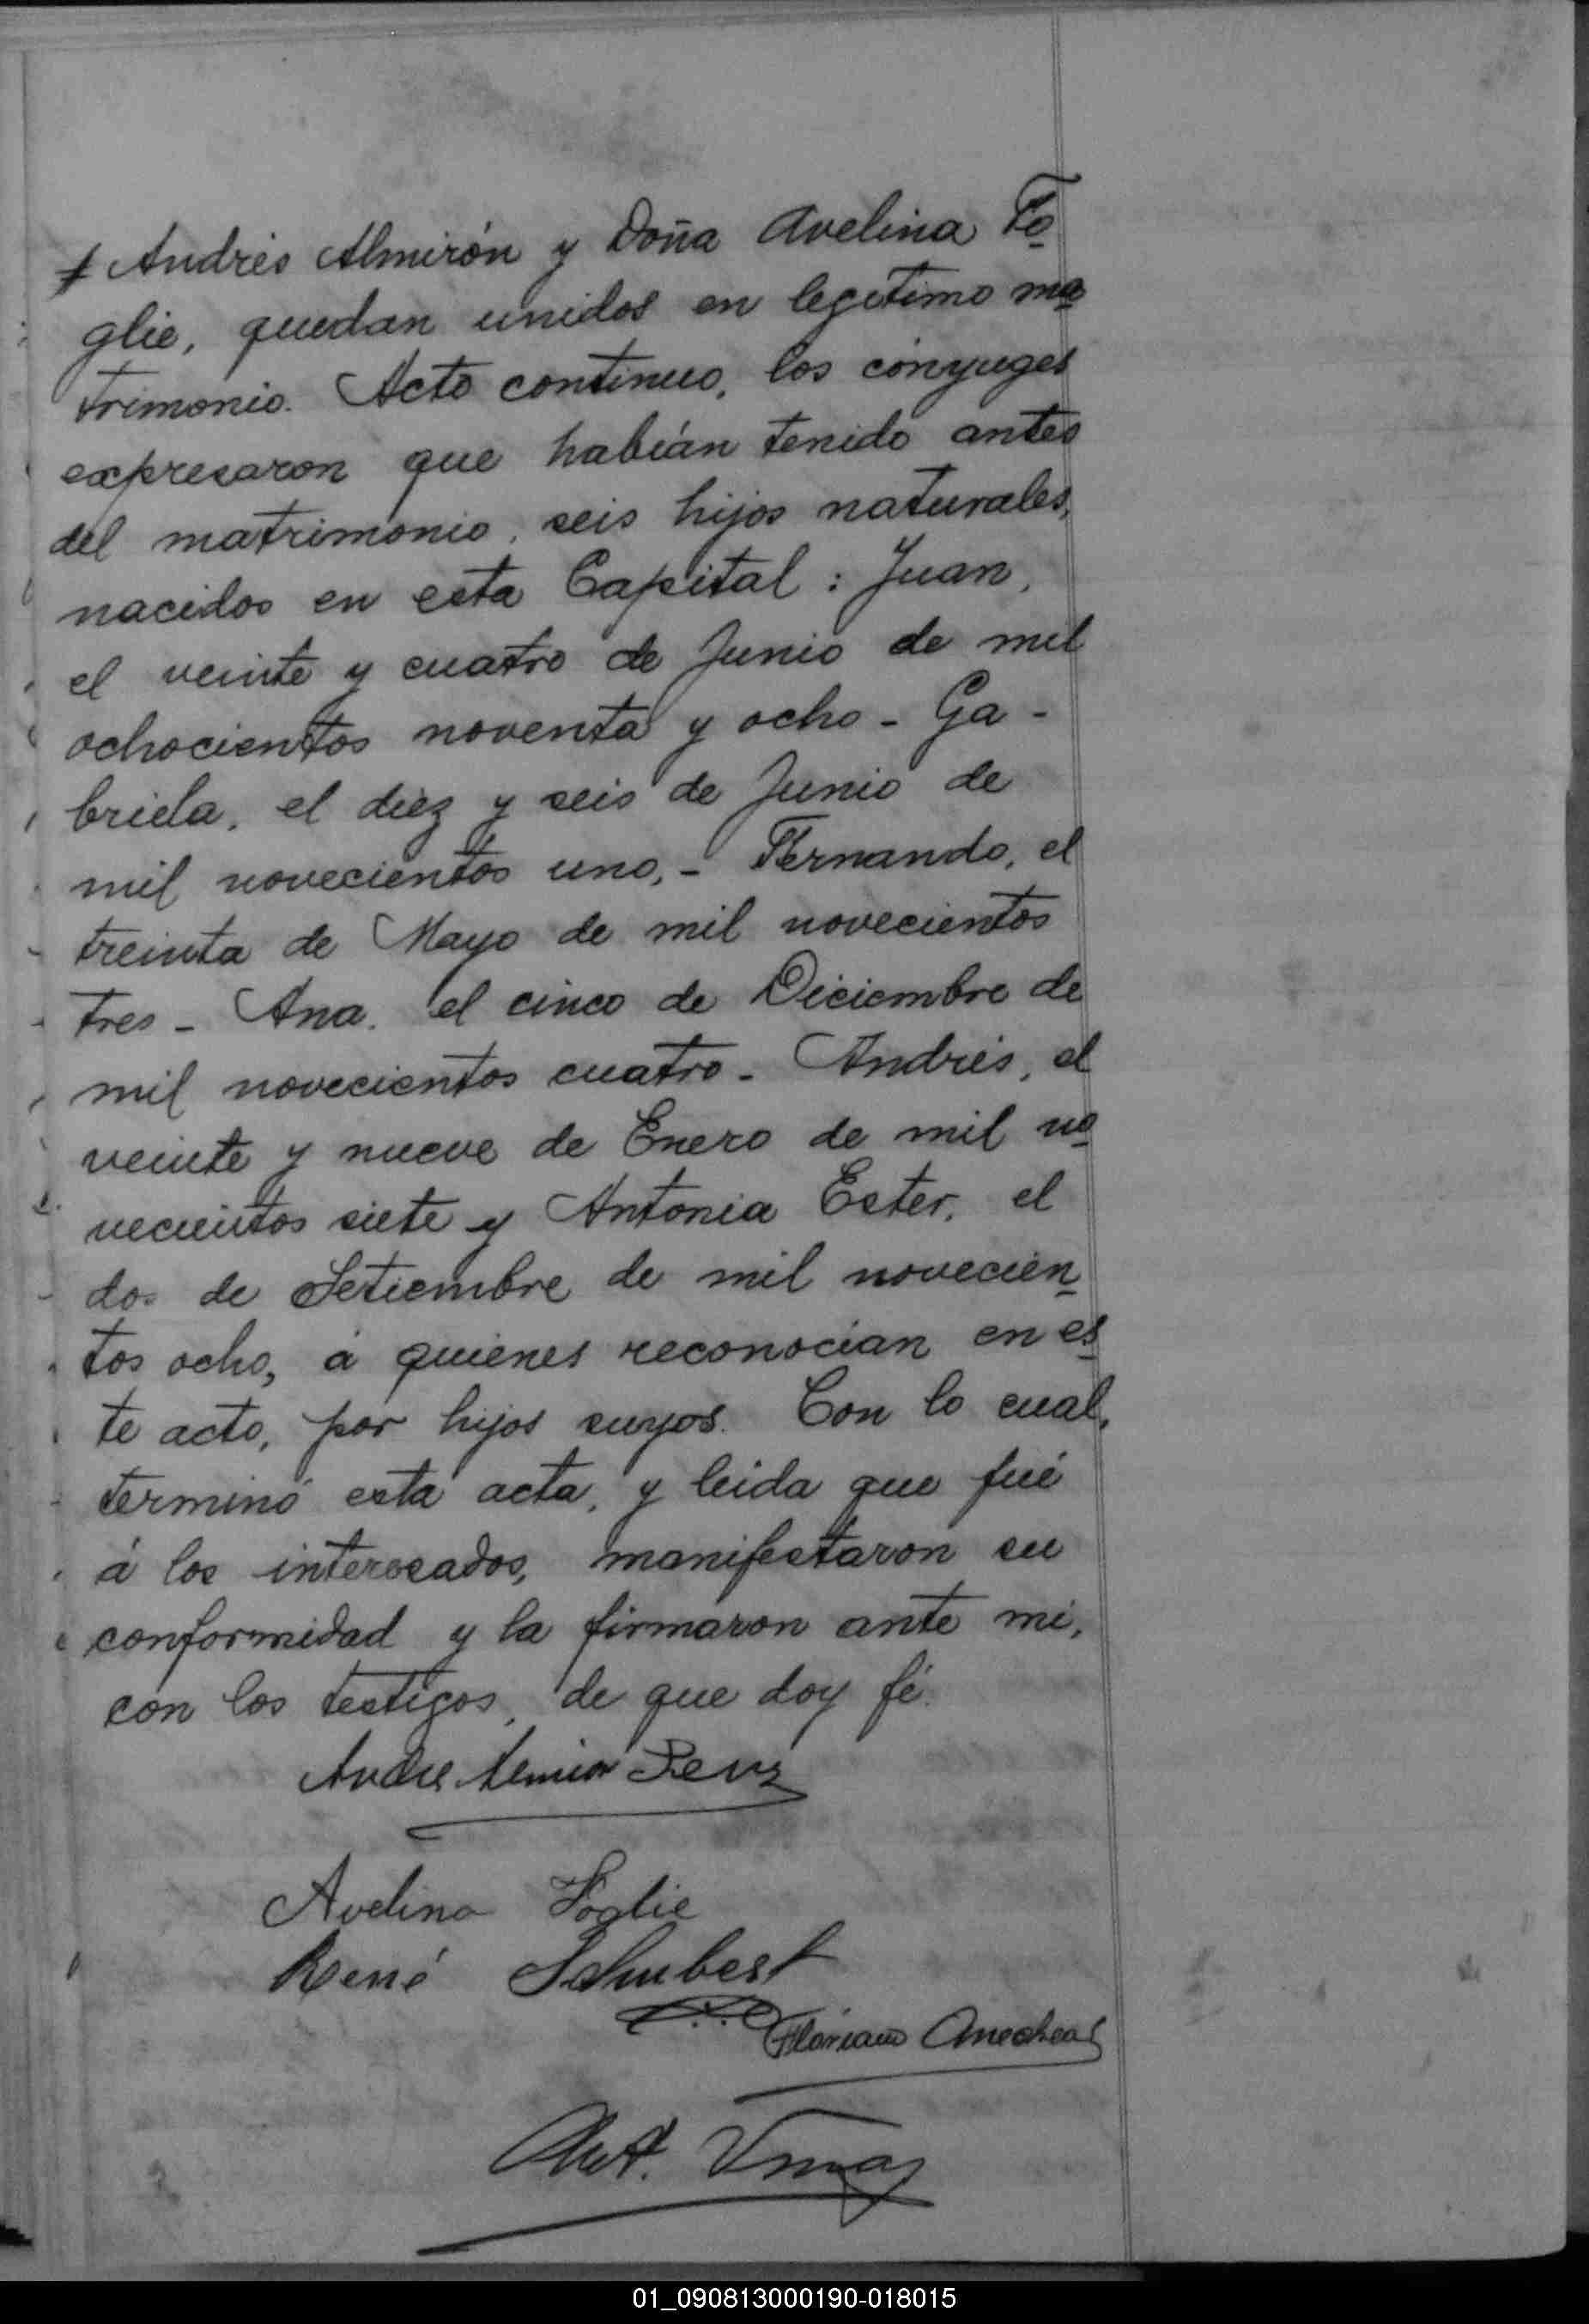 Andrés Almirón y Doña Avelina Fo
glie, quedan unidos en legitimo ma
trimonio. Acto continuo, los cónyuges
expresaron que habían tenido antes
del matrimonio, seis hijos naturales,
nacidos en esta Capital: Juan,
el veinte y cuatro de Junio de mil
ochocientos noventa y ocho - Ga-
briela, el diez y seis de Junio de
mil novecientos uno, - Fernando, el
treinta de Mayo de mil novecientos
tres - Ana, el cinco de Diciembre de
mil novecientos cuatro - Andrés, el
veinte y nueve de Enero de mil no
vecientos siete y Antonia Ester, el
dos de Setiembre de mil novecien
tos ocho, á quienes reconocían en es
te acto, por hijos suyos. Con lo cual,
terminó esta acta, y leida que fué
á los interesados, manifestaron su
conformidad y la firmaron ante mi,
con los testigos, de que doy fé.
Avelina Foglie
René Schubert
01_090813000190-018015